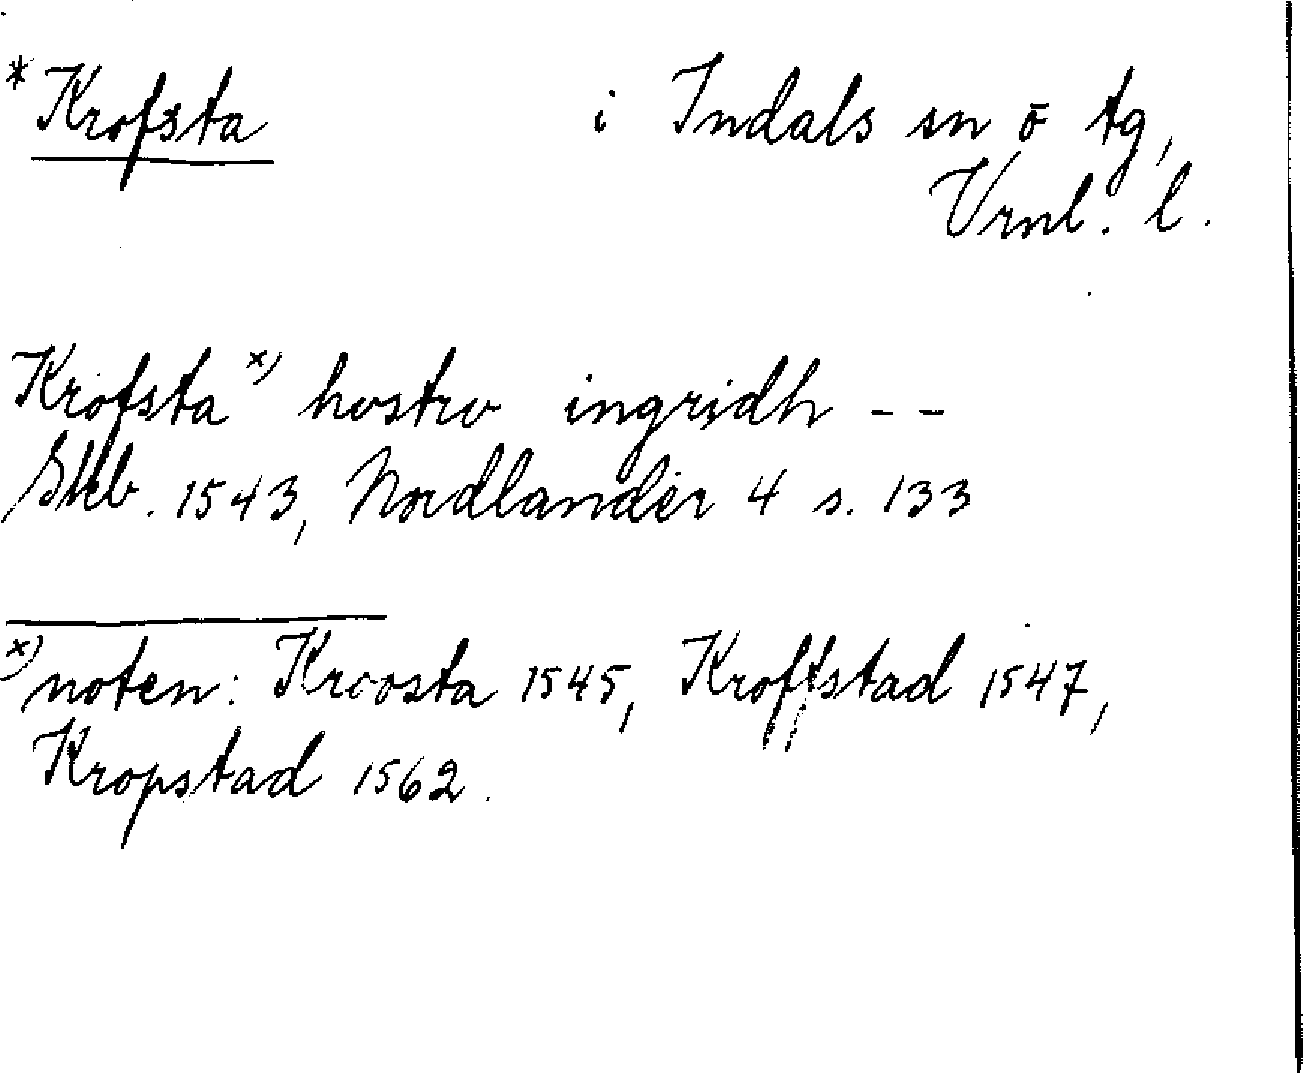 *Krofsta i Indals sn o tg,
Vrnl. l.
Krofsta x) hostro ingridh --
Skb. 1543, Nordlander 4 s. 133
x) noten: Kroosta 1545, Kroffstad 1547,
Kropstad 1562.